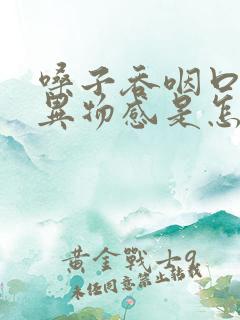 嗓子吞咽口
异物感是怎
黄金战士9
未经同意禁止转载